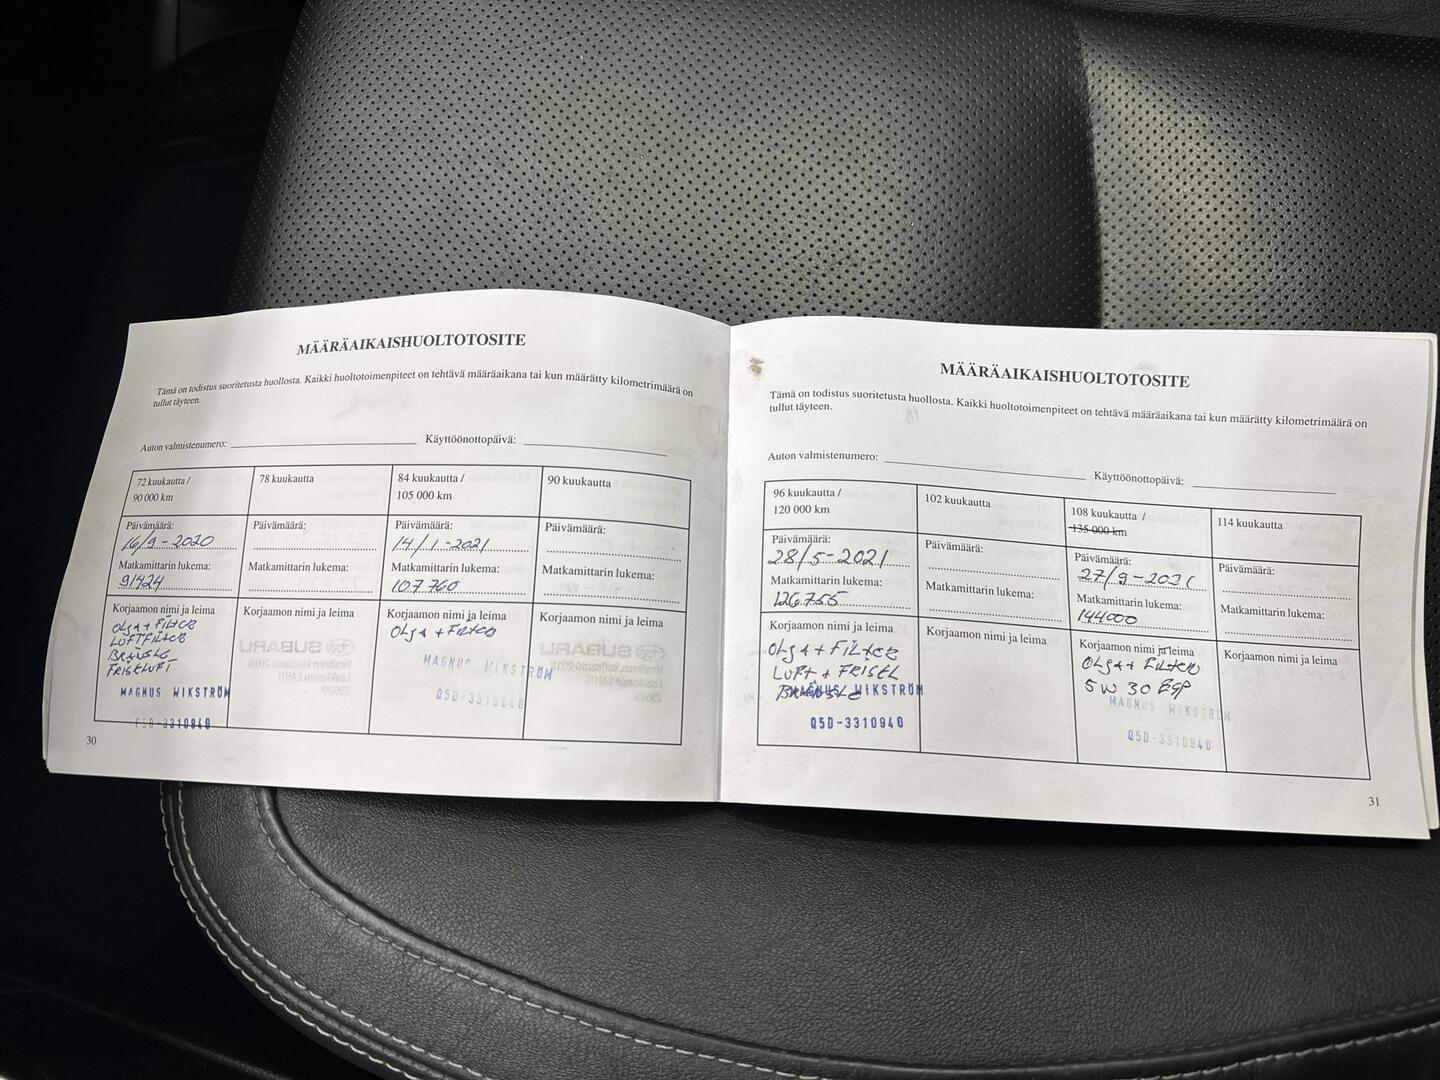 MÄÄRÄAIKAISHUOLTOTOSITE
Tämä on todistus suoritetusta huollosta. Kaikki huoltotoimenpiteet on tehtävä määräaikana tai kun määrätty kilometrimäärä on
tullut täyteen.
Auton valmistenumero: Käyttöönottopäivä:
72 kuukautta /
90 000 km
78 kuukautta
84 kuukautta /
105 000 km
90 kuukautta
Päivämäärä:
16/9-2020
Päivämäärä:
Päivämäärä:
14/1-2021
Päivämäärä:
Matkamittarin lukema:
91424
Matkamittarin lukema:
Matkamittarin lukema:
107760
Matkamittarin lukema:
Korjaamon nimi ja leima
OLJA + FILTER
LUFTFILTER
BRÄNSLE
FRISKLUFT
MAGNUS WIKSTRÖM
Q5D-3310940
Korjaamon nimi ja leima
Korjaamon nimi ja leima
OLJA + FILTER
MAGNUS WIKSTRÖM
Q5D-3310940
Korjaamon nimi ja leima
30
MÄÄRÄAIKAISHUOLTOTOSITE
Tämä on todistus suoritetusta huollosta. Kaikki huoltotoimenpiteet on tehtävä määräaikana tai kun määrätty kilometrimäärä on
tullut täyteen.
Auton valmistenumero: Käyttöönottopäivä:
96 kuukautta /
120 000 km
102 kuukautta
108 kuukautta /
135 000 km
114 kuukautta
Päivämäärä:
28/5-2021
Päivämäärä:
Päivämäärä:
27/9-202
Päivämäärä:
Matkamittarin lukema:
126755
Matkamittarin lukema:
Matkamittarin lukema:
144000
Matkamittarin lukema:
Korjaamon nimi ja leima
OLJA + FILTER
LUFT +
BRÄNSLE
MAGNUS WIKSTRÖM
Q5D-3310940
Korjaamon nimi ja leima
Korjaamon nimi ja leima
OLJA + FILTER
5W30
MAGNUS WIKSTRÖM
Q5D-3310940
Korjaamon nimi ja leima
31